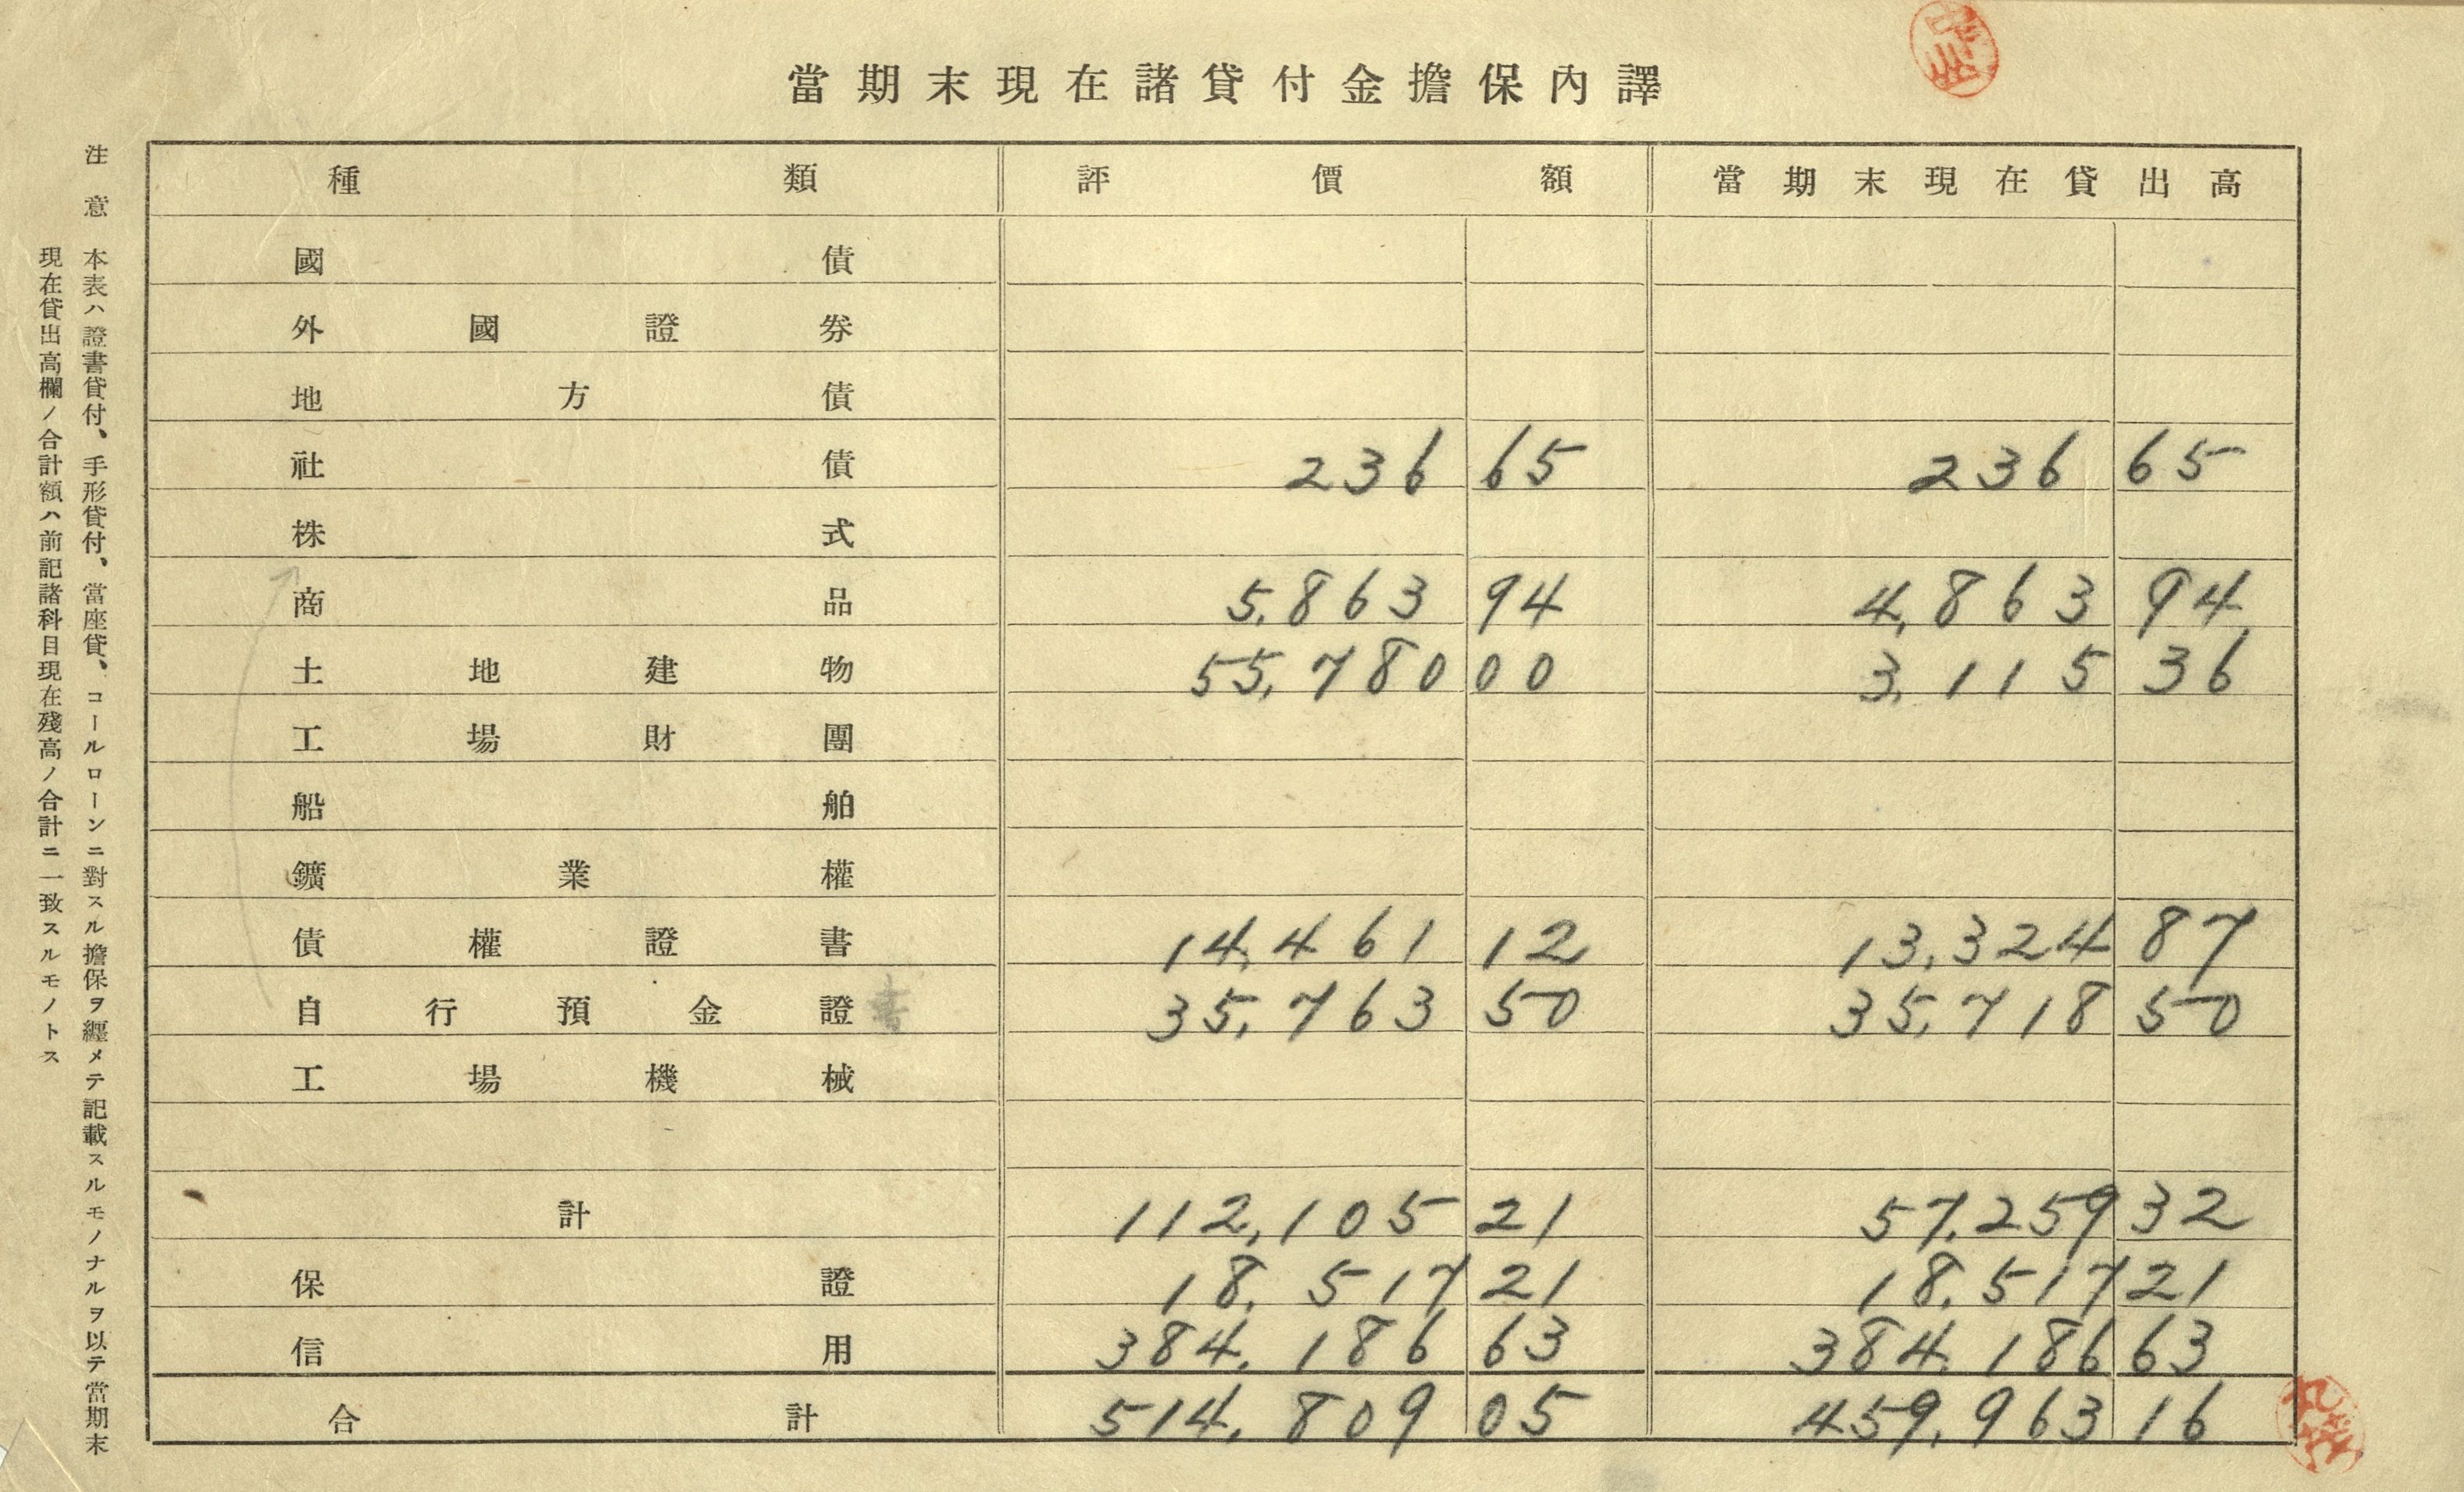 當期末現在諸貸付金擔保內譯
種類 評價額 當期末現在貸出高
國債
外國證券
地方債
社債 236 65 236 65
株式
商品 5,863 94 4,863 94
土地建物 55,780 00 3,115 36
工場財團
船舶
鑛業權
債權證書 14,461 12 13,324 87
自行預金證書 35,763 50 35,718 50
工場機械
計 112,105 21 57,259 32
保證 18,517 21 18,517 21
信用 384,186 63 384,186 63
合計 514,809 05 459,963 16
注意 本表ハ證書貸付、手形貸付、當座貸、コールローンニ對スル擔保ヲ纒メテ記載スルモノナルヲ以テ當期末
現在貸出高欄ノ合計額ハ前記諸科目現在殘高ノ合計ニ一致スルモノトス